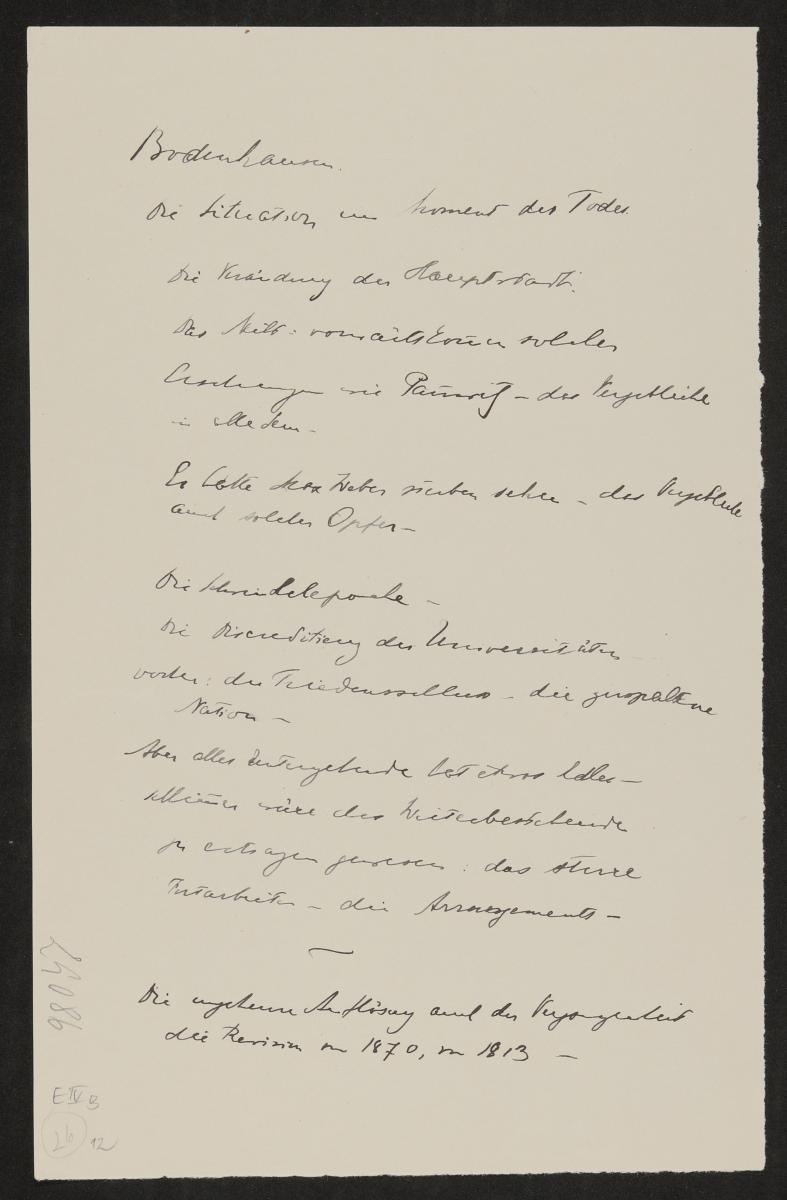 Bodenhausen.
Die Situation im Moment des Todes.
Die Veränderung der Hauptstadt.
Das Milit: solcher
Erscheinungen wie Pannwitz – das Vergebliche
in alledem –
Er hätte Max Weber sterben sehen – das Vergebliche
auch solcher Opfer –
Die Schwindelepoche –
Die Discreditierung der Universitäten
vorher: der Friedensschluss – die zerspaltene
Nation –
Aber alles Untergehende hat etwas Edles –
schlimmer wäre das Weiterbestehende
zu ertragen gewesen: das sture
Fortarbeiten – die Arrangements –
Die ungeheure Auflösung auch der Vergangenheit
die Revision von 1870, von 1813 –
98047
E IV B
26 12